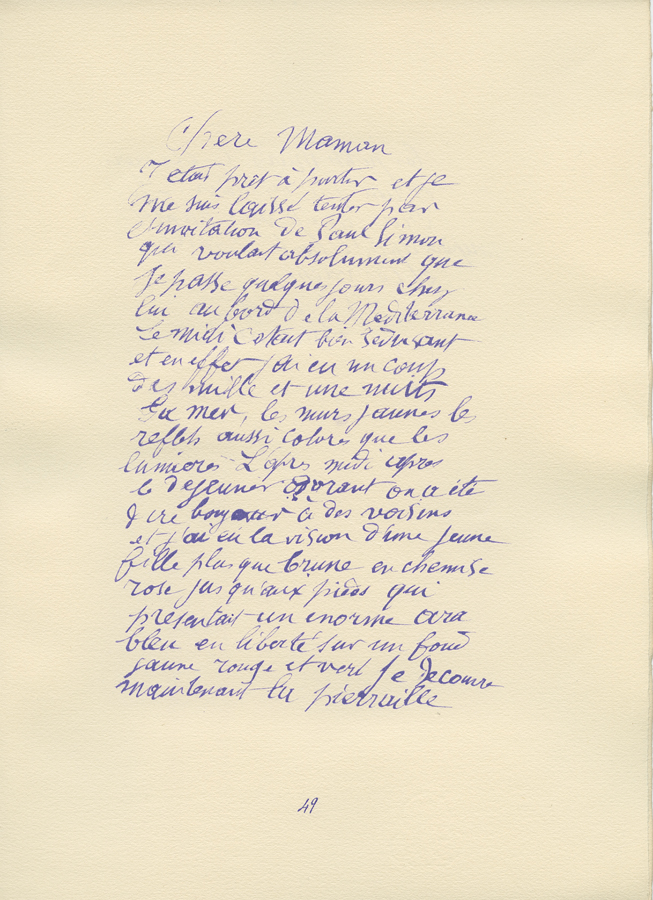 Chere Maman
J'etais pret à partir et je
me suis laissé tenter par
l'invitation de Paul Simon
qui voulait absolument que
je passe quelques jours chez
lui au bord de la Mediterranee
Le midi c'etait bien seduisant
et en effet j'ai eu un coup
des mille et une nuits
La mer, les murs jaunes les
reflets aussi colorés que les
lumieres - L'apres midi apres
le dejeuner on a été
dire bonjour à des voisins
et j'ai eu la vision d'une jeune
fille plus que brune en chemise
rose jusqu'aux pieds qui
presentait un enorme ara
bleu en liberté sur un fond
jaune rouge et vert Je decouvre
maintenant la pierraille
49